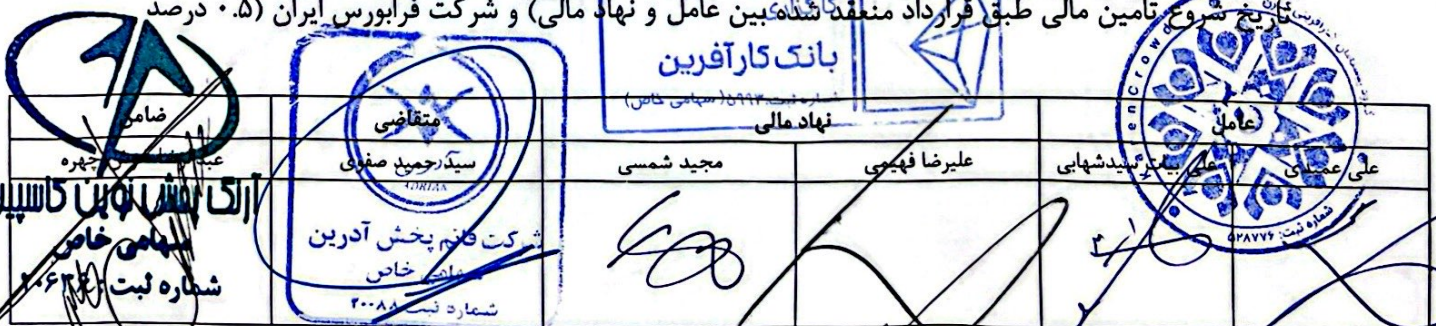 تاریخ شروع تامین مالی طبق قرارداد منعقد شده بین عامل و نهاد مالی) و شرکت فرابورس ایران (۰.۵ درصد
کارگزاری
بانک کارآفرین
(سهامی خاص)
عامل
نهاد مالی
متقاضی
ضامن
علی عمیدی
علی بیات سیدشهابی
علیرضا فهیمی
مجید شمسی
سیدرحمید صفوی
چهره
شماره ثبت: ۵۲۸۷۷۶
شرکت قائم پخش آدرین
سهامی خاص
شماره ثبت ۲۰۰۸۸
نوین کاسپین
سهامی خاص
شماره ثبت